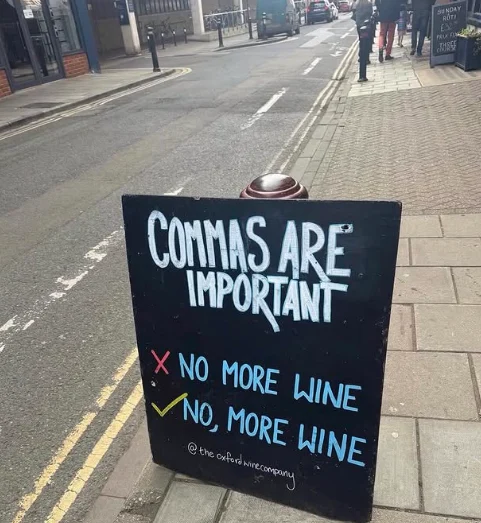 COMMAS ARE
IMPORTANT
✗ NO MORE WINE
✓ NO, MORE WINE
@the oxfordwinecompany